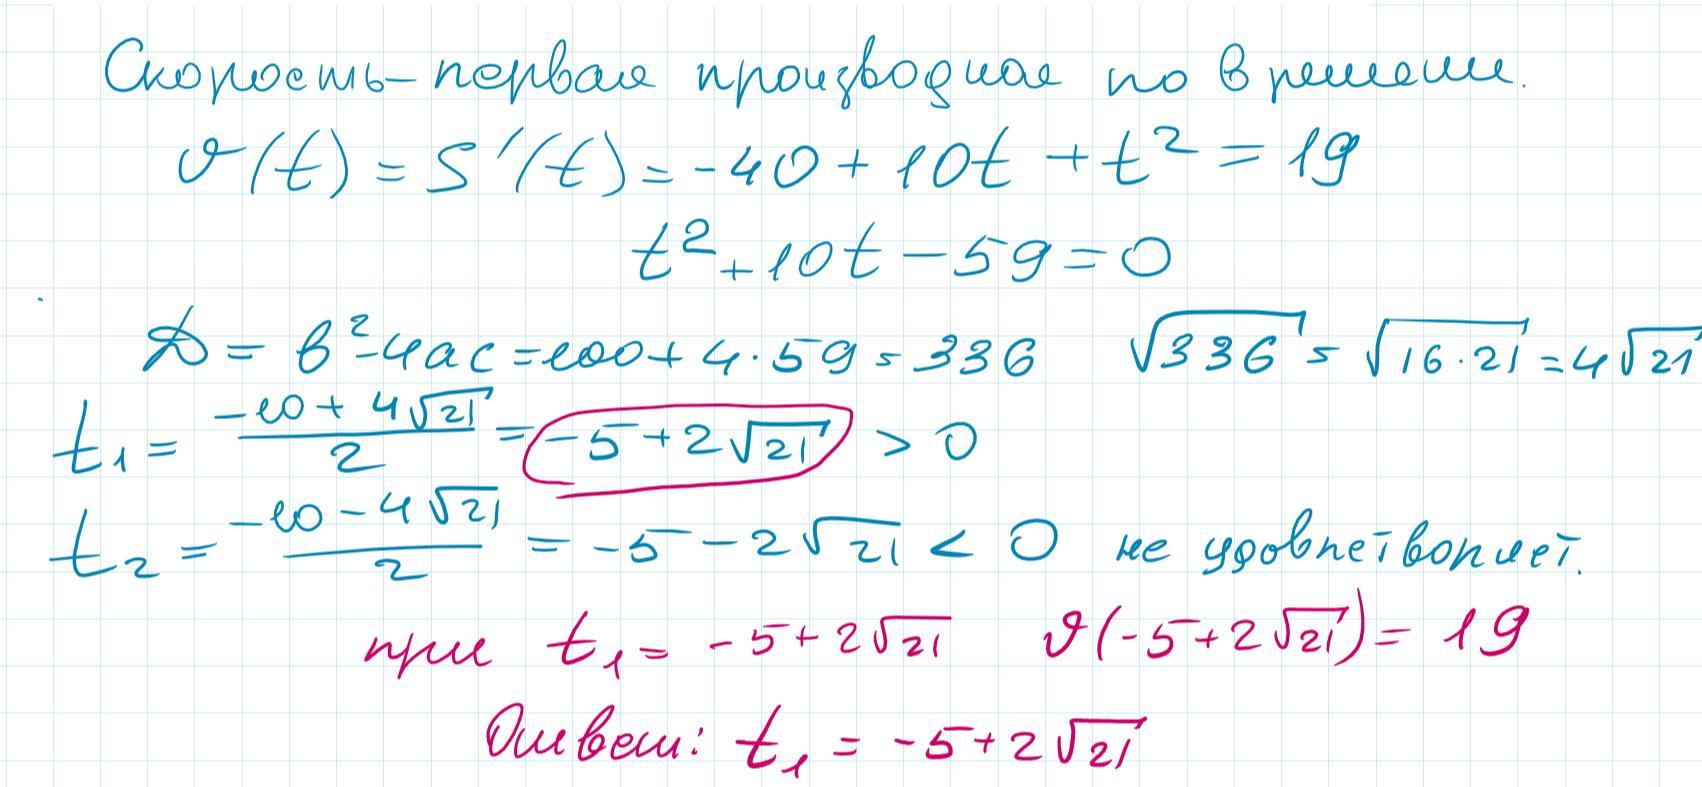 Скорость - первая производная по времени.
v(t) = S'(t) = -40 + 10t + t² = 19
t² + 10t - 59 = 0
D = b² - 4ac = 100 + 4·59 = 336 √336 = √16·21 = 4√21
t₁ = (-10 + 4√21)/2 = -5 + 2√21 > 0
t₂ = (-10 - 4√21)/2 = -5 - 2√21 < 0 не удовлетворяет.
при t₁ = -5 + 2√21 v(-5 + 2√21) = 19
Ответ: t₁ = -5 + 2√21